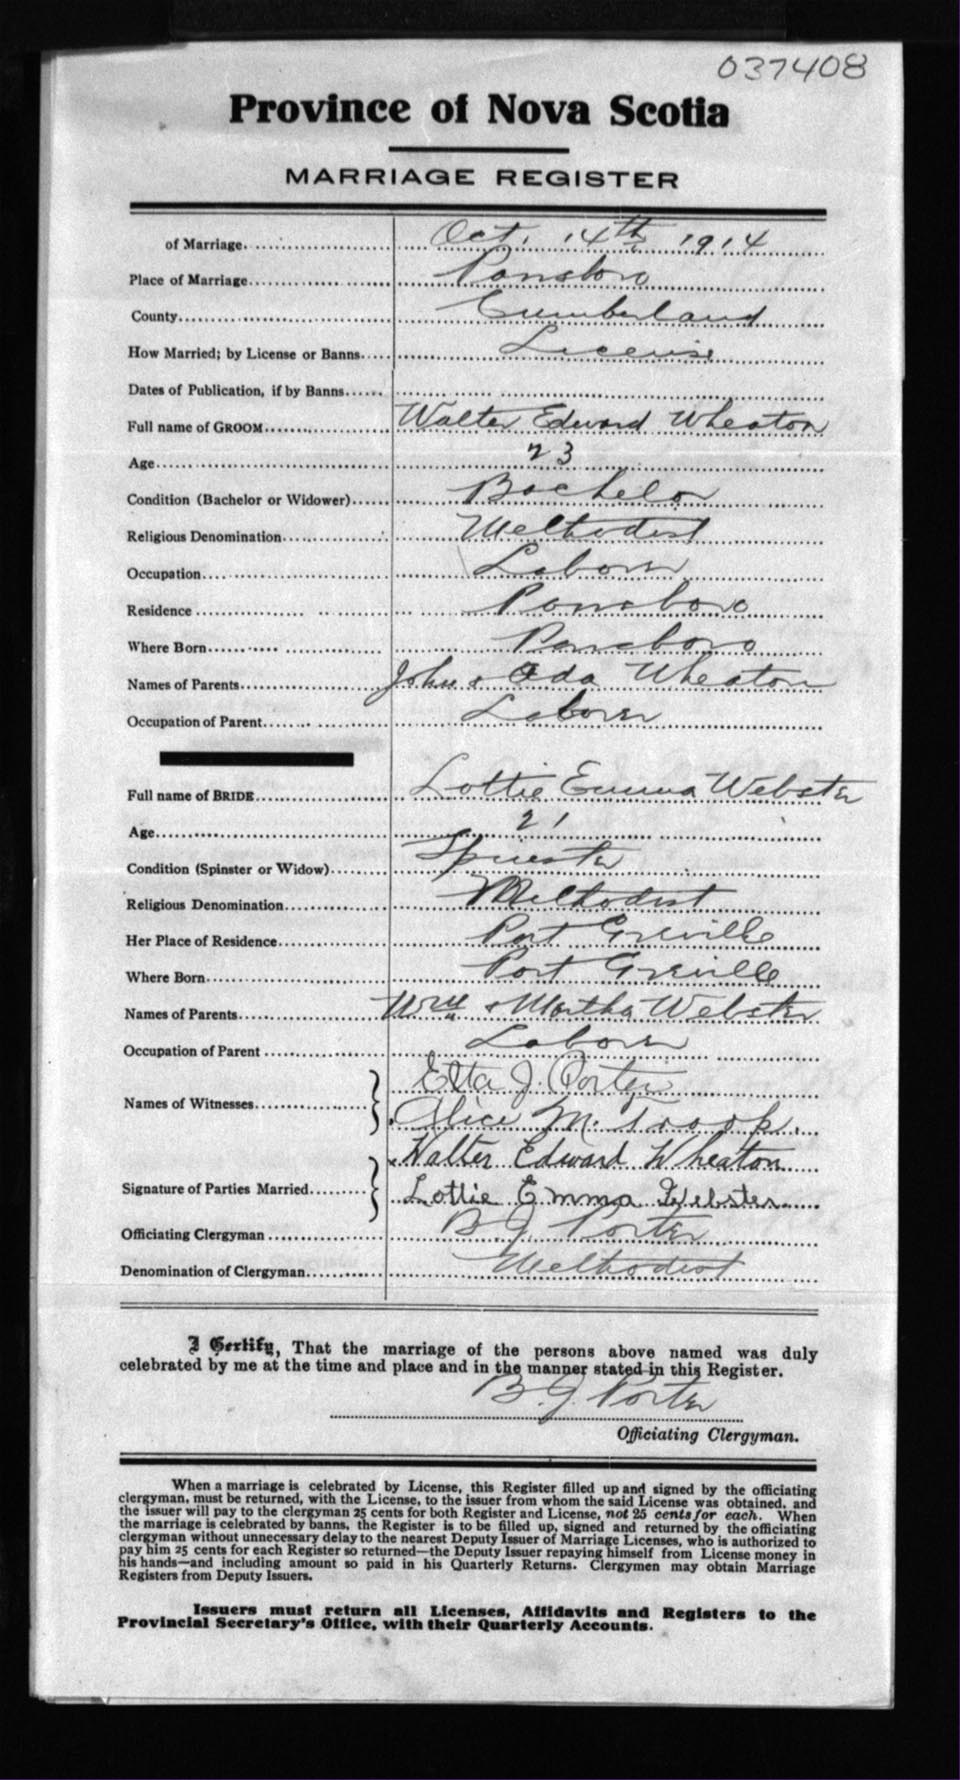 037408
Province of Nova Scotia
MARRIAGE REGISTER
of Marriage. Oct. 14th 1914
Place of Marriage Parrsboro
County Cumberland
How Married; by License or Banns License
Dates of Publication, if by Banns
Full name of GROOM Walter Edward Wheaton
Age 23
Condition (Bachelor or Widower) Bachelor
Religious Denomination Methodist
Occupation Laborer
Residence Parrsboro
Where Born Parrsboro
Names of Parents John & Ada Wheaton
Occupation of Parent Laborer
Full name of BRIDE Lottie Emma Webster
Age 21
Condition (Spinster or Widow) Spinster
Religious Denomination Methodist
Her Place of Residence Port Greville
Where Born Port Greville
Names of Parents Wm & Martha Webster
Occupation of Parent Laborer
Names of Witnesses Etta J. Porter
Alice M. Troop.
Signature of Parties Married Walter Edward Wheaton
Lottie Emma Webster
Officiating Clergyman B J Porter
Denomination of Clergyman Methodist
I Certify, That the marriage of the persons above named was duly
celebrated by me at the time and place and in the manner stated in this Register.
B. J. Porter
Officiating Clergyman.
When a marriage is celebrated by License, this Register filled up and signed by the officiating
clergyman, must be returned, with the License, to the issuer from whom the said License was obtained, and
the issuer will pay to the clergyman 25 cents for both Register and License, not 25 cents for each. When
the marriage is celebrated by banns, the Register is to be filled up, signed and returned by the officiating
clergyman without unnecessary delay to the nearest Deputy Issuer of Marriage Licenses, who is authorized to
pay him 25 cents for each Register so returned—the Deputy Issuer repaying himself from License money in
his hands—and including amount so paid in his Quarterly Returns. Clergymen may obtain Marriage
Registers from Deputy Issuers.
Issuers must return all Licenses, Affidavits and Registers to the
Provincial Secretary's Office, with their Quarterly Accounts.